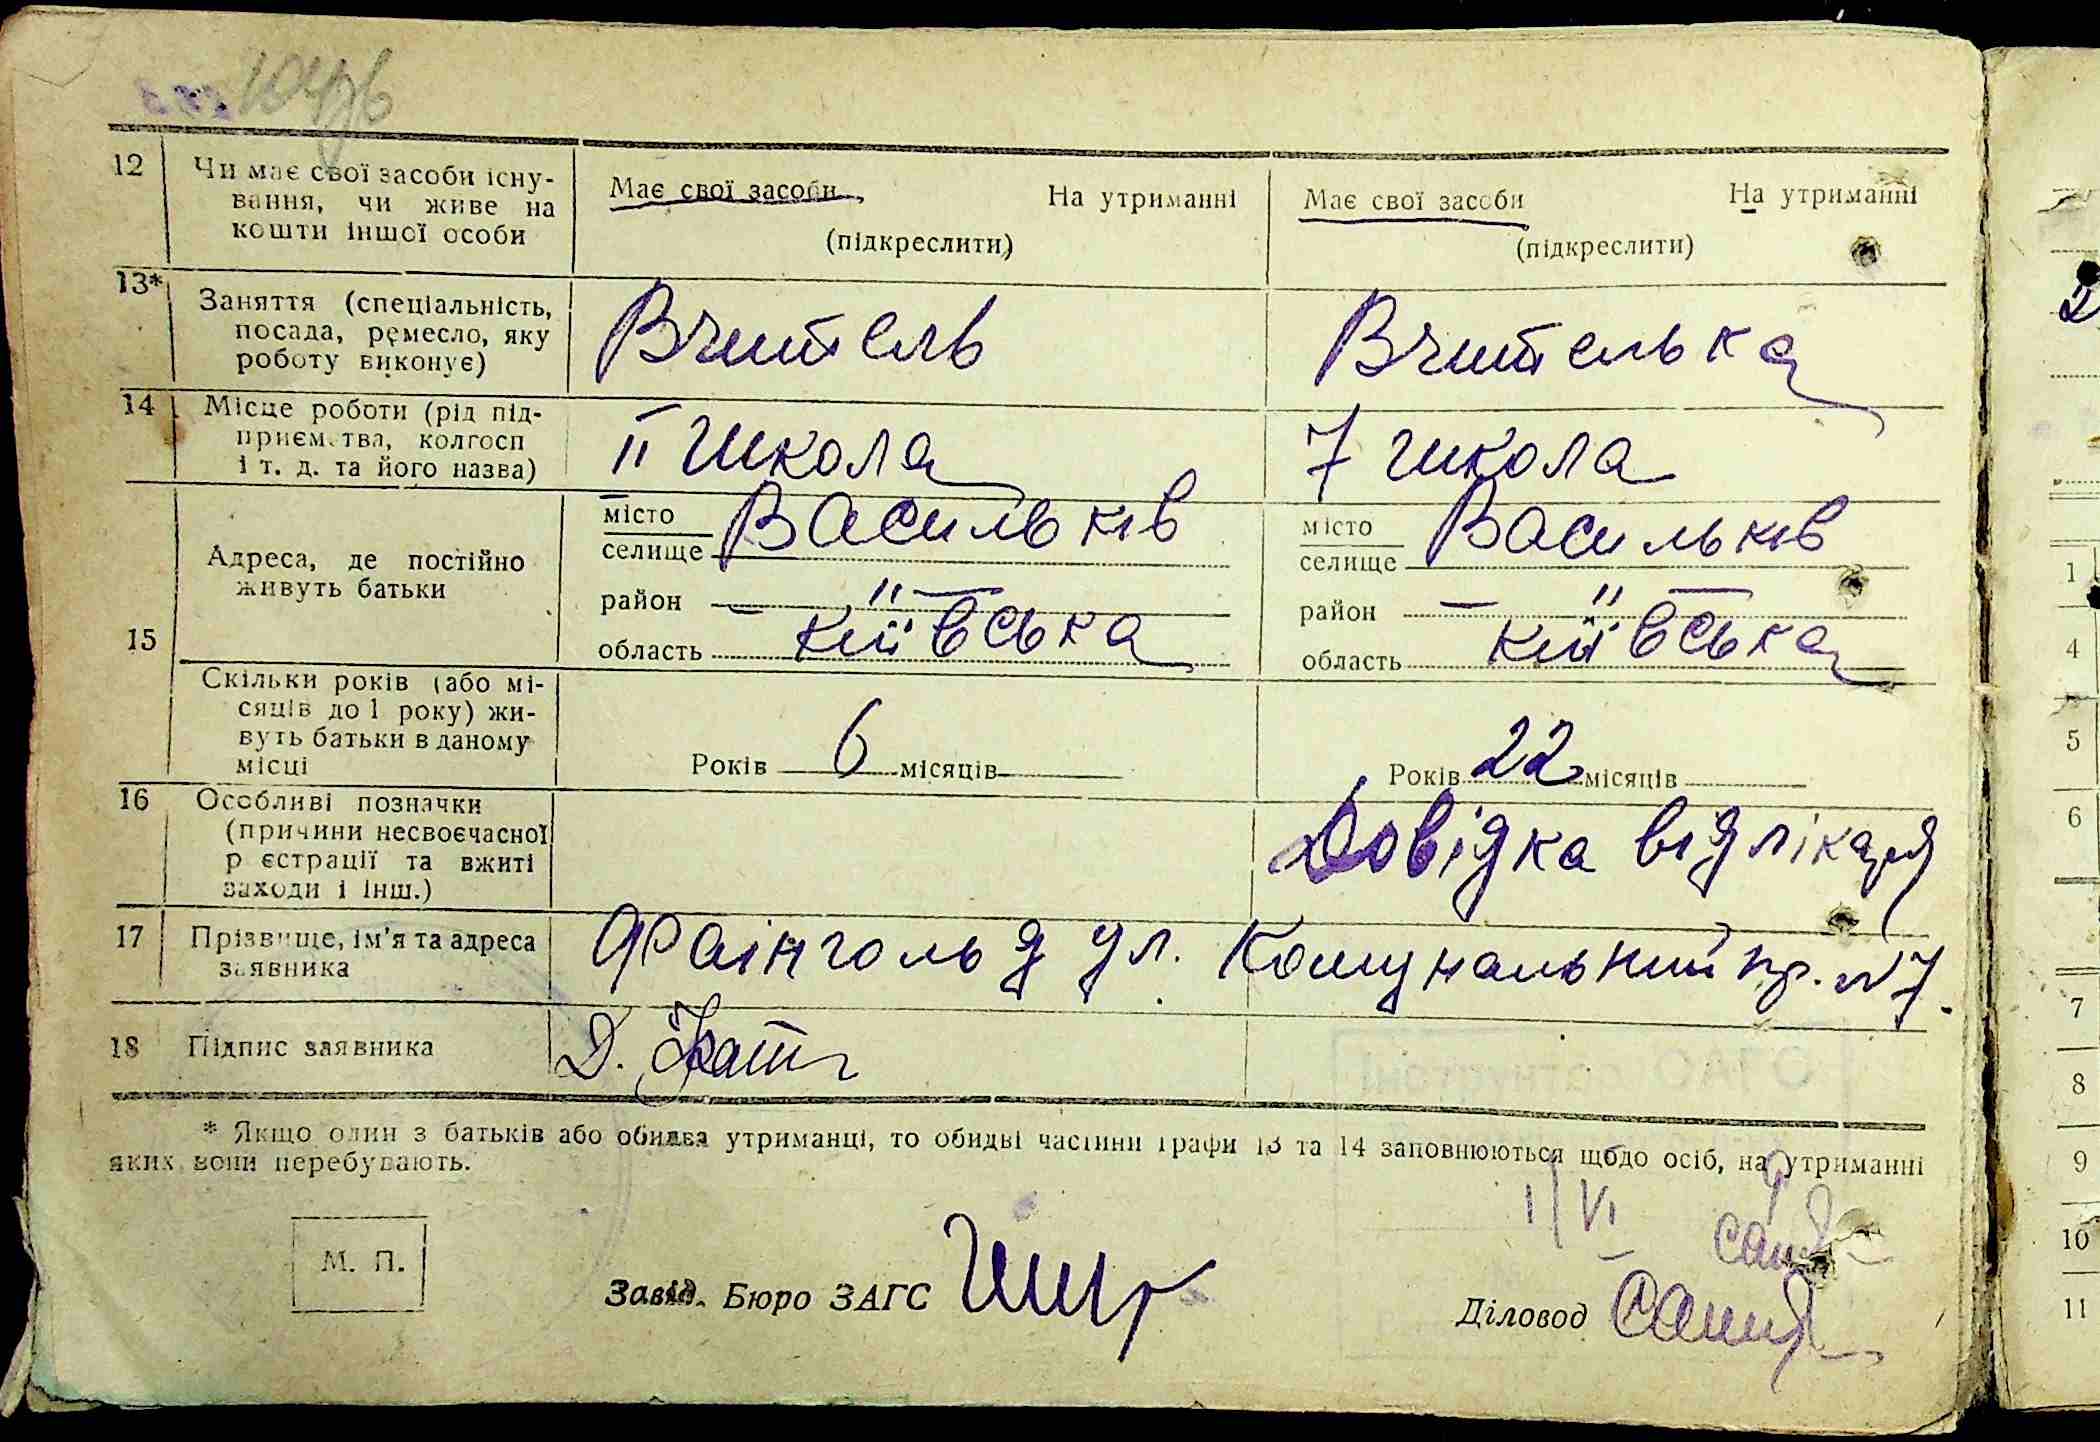 12 Чи має свої засоби існу- Має свої засоби На утриманні Має свої засоби На утриманні
вання, чи живе на
кошти іншої особи (підкреслити) (підкреслити)
13* Заняття (спеціальність,
посада, ремесло, яку Вчитель Вчителька
роботу виконує)
14 Місце роботи (рід під-
приємства, колгосп II школа 7 школа
і т. д. та його назва)
15 Адреса, де постійно
живуть батьки
місто Васильків місто Васильків
селище селище
район — " — район — " —
область Київська область Київська
Скільки років (або мі-
сяців до 1 року) жи-
вуть батьки в даному
місці Років 6 місяців Років 22 місяців
16 Особливі позначки
(причини несвоєчасної Довідка від лікаря
р єстрації та вжиті
заходи і інш.)
17 Прізвище, ім'я та адреса Фаінгольд ул. Комунальний пр. N 7.
заявника
18 Підпис заявника Д.
* Якщо один з батьків або обидва утриманці, то обидві частини графи 13 та 14 заповнюються щодо осіб, на утриманні
яких вони перебувають.
1/VI
М. П.
Завід. Бюро ЗАГС
Діловод
1
4
5
6
7
8
9
10
11